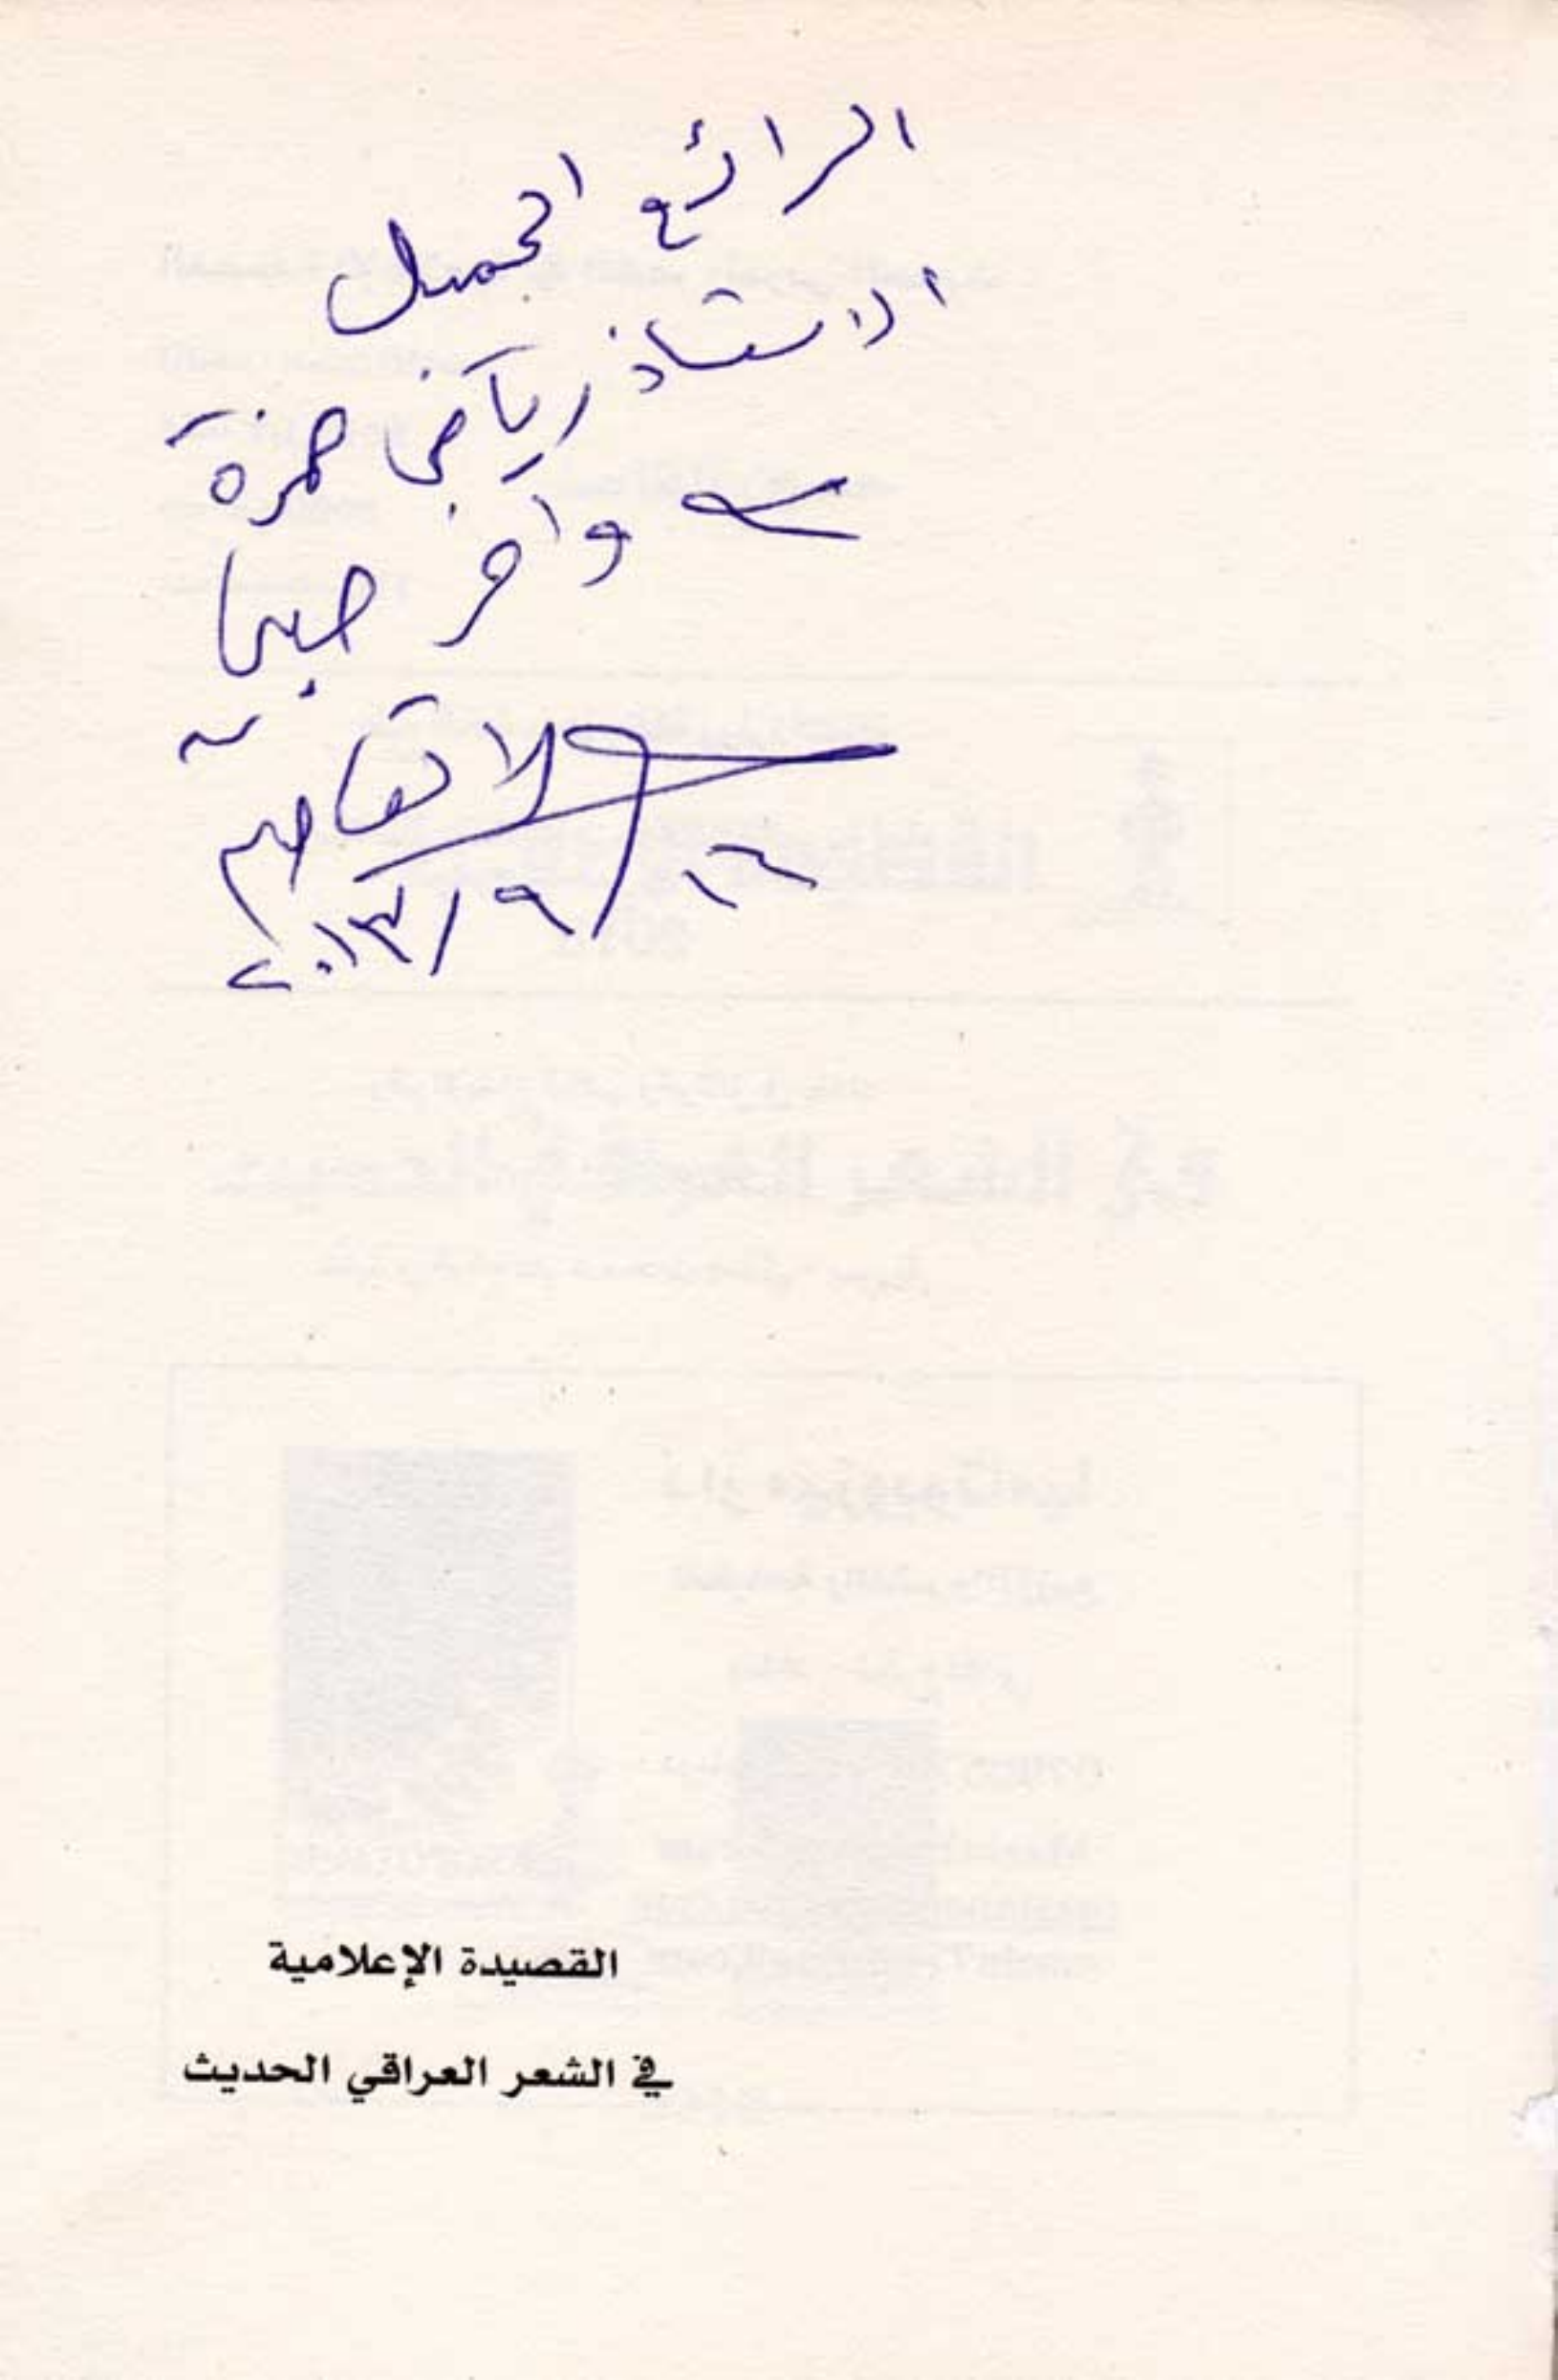 الرائع الجميل
الاستاذ رياض حمزة
مع وافر
٢٠١٣/٩/١٦
القصيدة الإعلامية
في الشعر العراقي الحديث